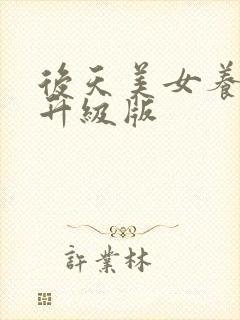 後天美女養
升級版
許業林